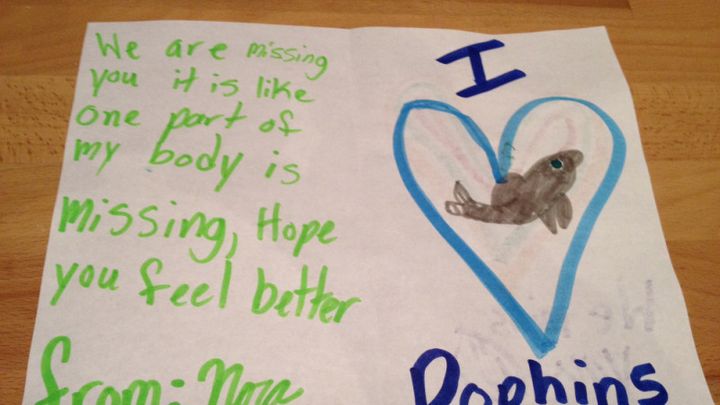 We are missing
you it is like
one part of
my body is
missing, Hope
you feel better
from: Nora
I
Dophins